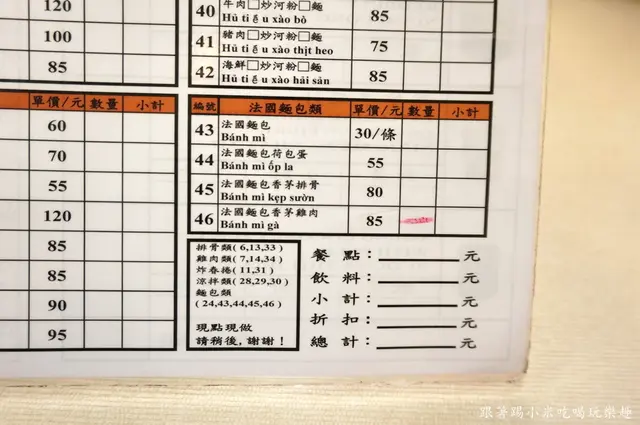 120
100
85
40 牛肉□炒河粉□麵 85
Hủ tiếu xào bò
41 豬肉□炒河粉□麵 75
Hủ tiếu xào thịt heo
42 海鮮□炒河粉□麵 85
Hủ tiếu xào hải sản
單價/元 數量 小計
60
70
55
120
85
85
90
95
編號 法國麵包類 單價/元 數量 小計
43 法國麵包 30/條
Bánh mì
44 法國麵包荷包蛋 55
Bánh mì ốp la
45 法國麵包香茅排骨 80
Bánh mì kẹp sườn
46 法國麵包香茅雞肉 85
Bánh mì gà
排骨類(6,13,33)
雞肉類(7,14,34)
炸春捲(11,31)
涼拌類(28,29,30)
麵包類
(24,43,44,45,46)
現點現做
請稍後,謝謝!
餐 點：元
飲 料：元
小 計：元
折 扣：元
總 計：元
跟著踢小米吃喝玩樂趣